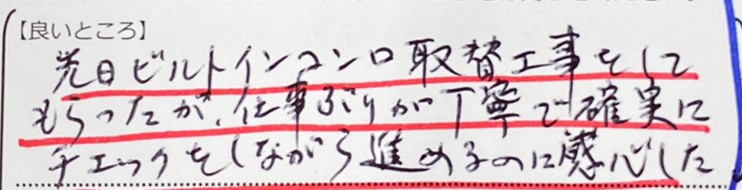 【良いところ】
先日ビルトインコンロ取替工事をして
もらったが、仕事ぶりが丁寧で確実に
チェックをしながら進めるのに感心した